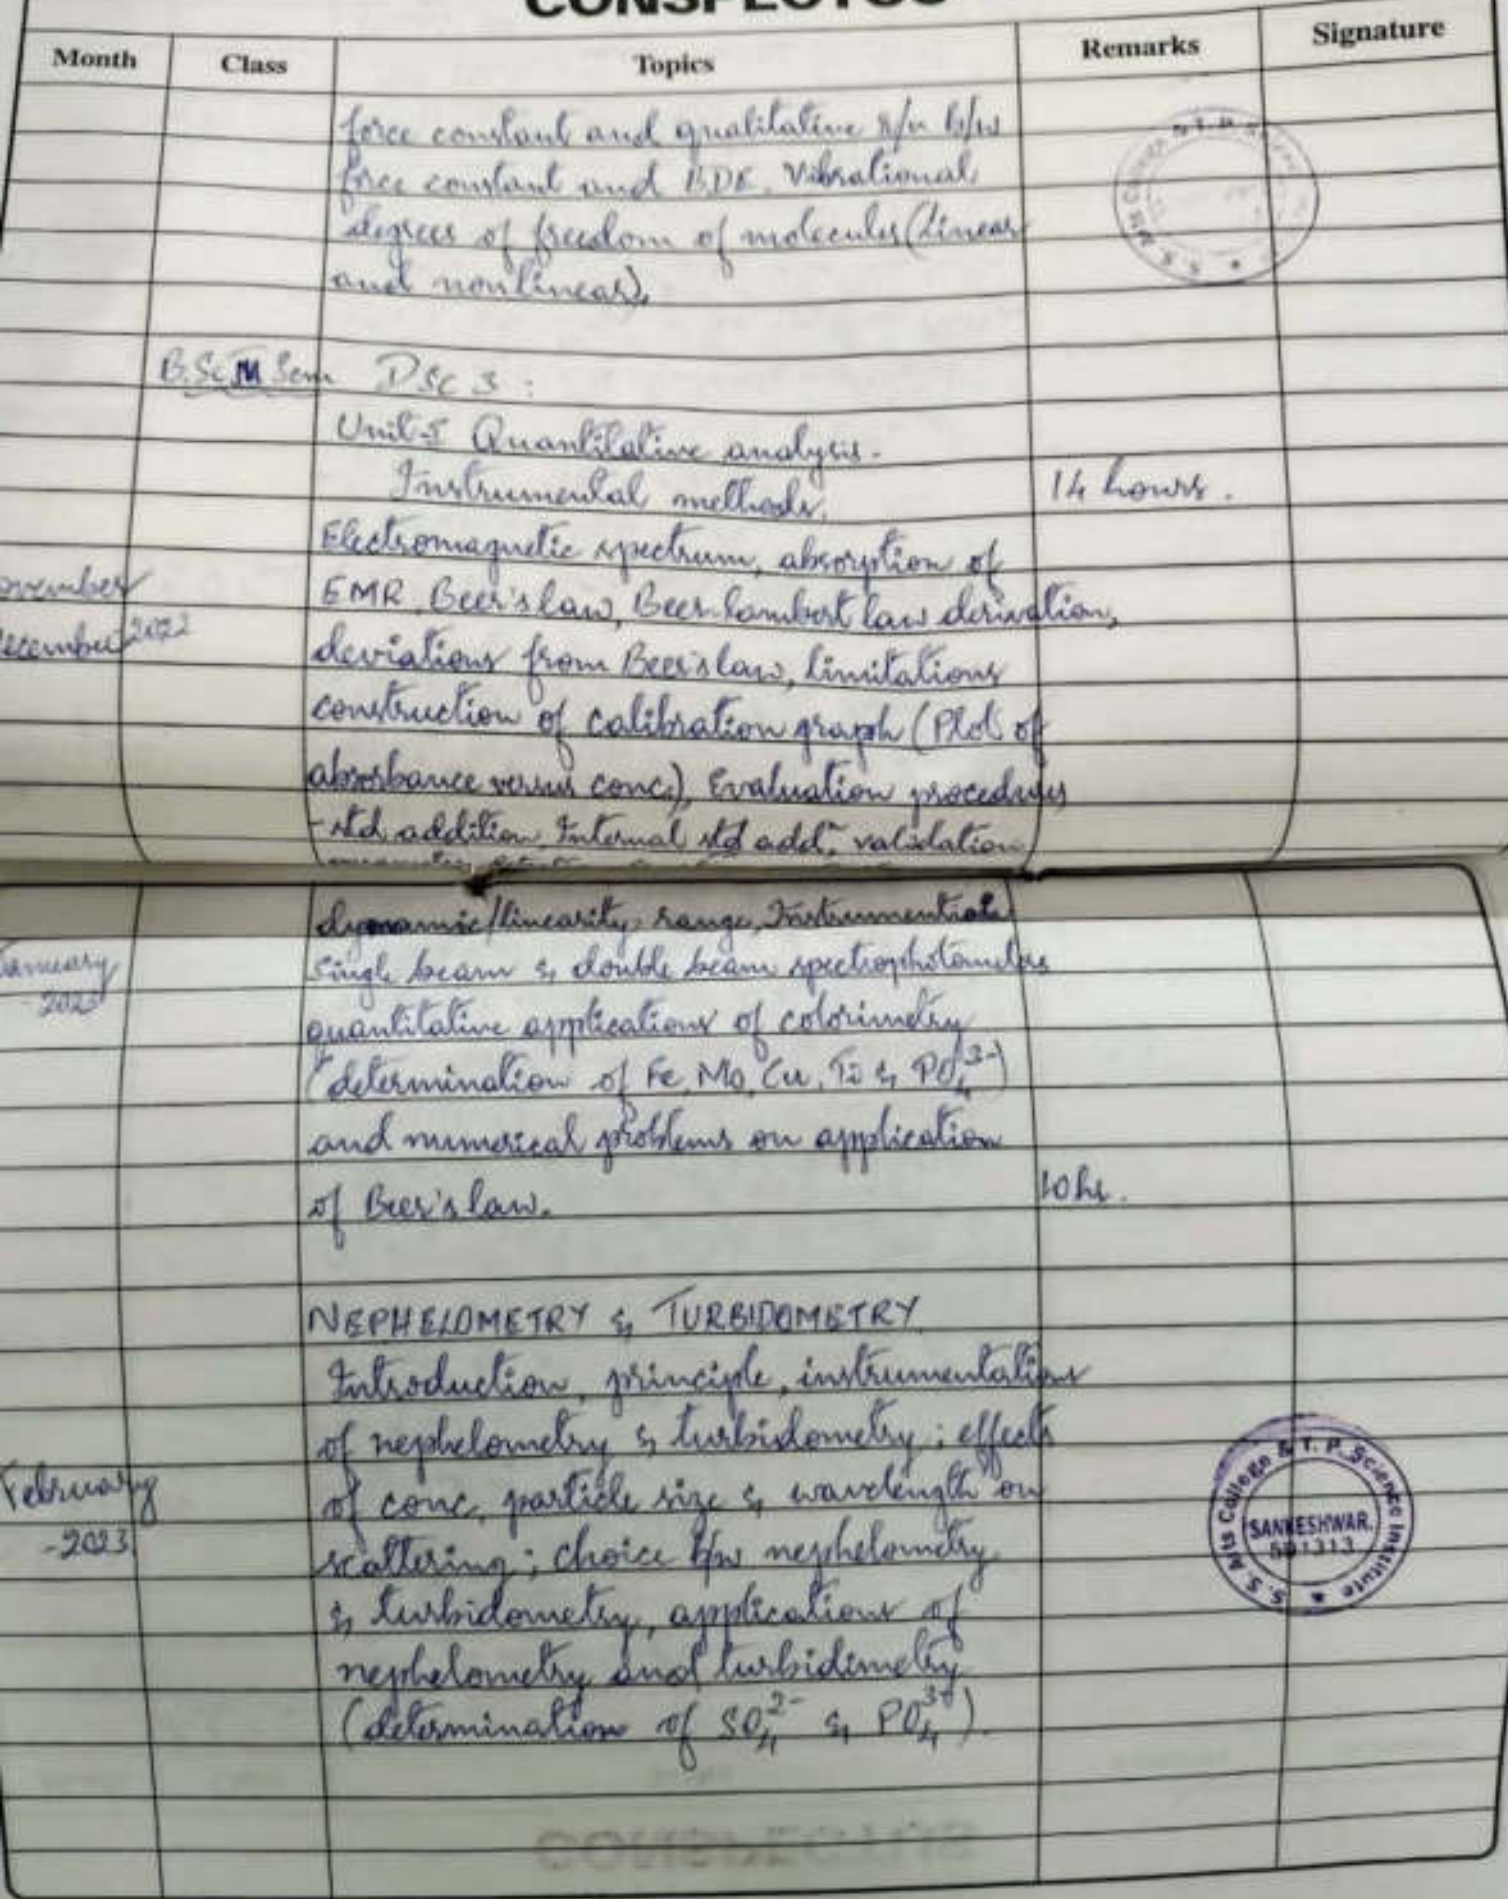 CONSPECTUS
Month Class Topics Remarks Signature
force constant and qualitative r/n b/w
force constant and BDE. Vibrational
degrees of freedom of molecules (linear
and nonlinear).
B.Sc III Sem DSC 3 :
Unit-I Quantitative analysis-
Instrumental methods. 14 hours.
Electromagnetic spectrum, absorption of
EMR, Beer's law, Beer-Lambert law derivation,
December 2022
deviations from Beer's law, limitations
construction of calibration graph (Plot of
absorbance versus conc.), Evaluation procedures
-std addition, Internal std addn, validation
dynamic/linearity range, Instrumentation
January
2023
single beam & double beam spectrophotometers
quantitative applications of colorimetry
(determination of Fe, Mo, Cu, Ti & PO₄³⁻)
and numerical problems on application
of Beer's law. 10 hr.
NEPHELOMETRY & TURBIDOMETRY
Introduction, principle, instrumentation
of nephelometry & turbidometry; effects
February
-2023
of conc, particle size & wavelength on
scattering; choice b/w nephelometry
& turbidometry, applications of
nephelometry and turbidimetry
(determination of SO₄²⁻ & PO₄³⁻).
S. S Arts College & T. P. Science Institute
SANKESHWAR.
591313